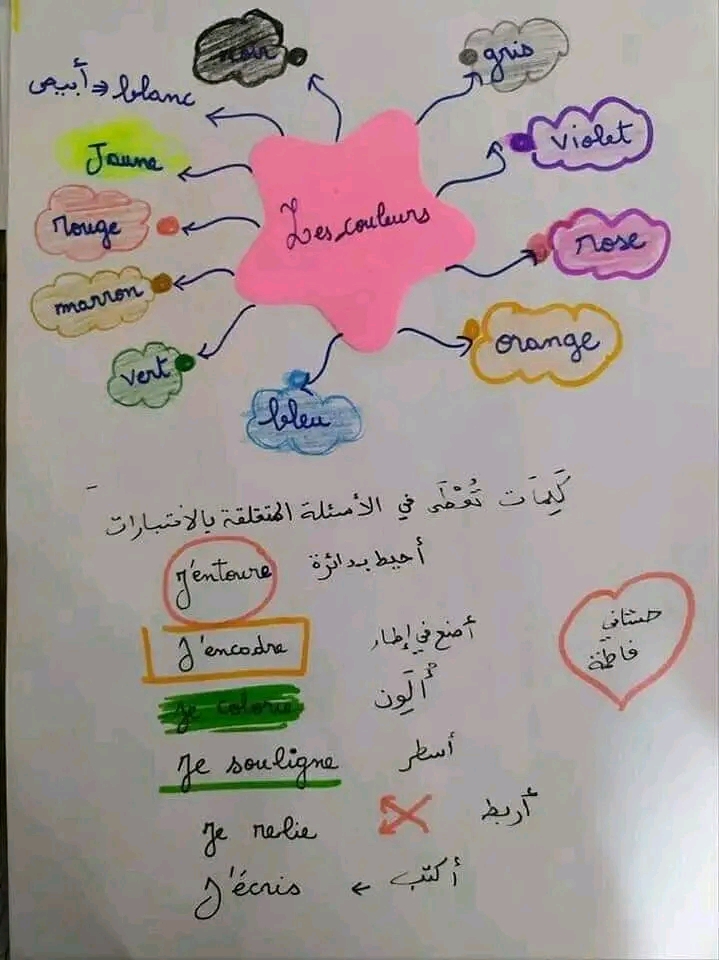 noir
gris
أبيض ⇐ blanc
violet
Jaune
rouge
Les couleurs
rose
marron
orange
vert
bleu
كَلِمَات تُعْطَى في الأسئلة المتعلقة بالاختبارات
j'entoure أحيط بدائرة
J'encadre أضع في إطار
je colorie أُلَوِن
Je souligne أسطر
Je relie أربط
J'écris ← أكتب
حساني
فاطمة